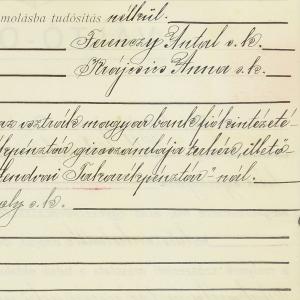 molásba tudósítás nélkül.
Ferenczy Antal s.k.
Krajcsis Anna s.k.
az osztrák magyar bank fiókintézeté-
kpénztár giroszámlája terhére, illető-
endrei Takarékpénztár"-nál.
ely s.k.